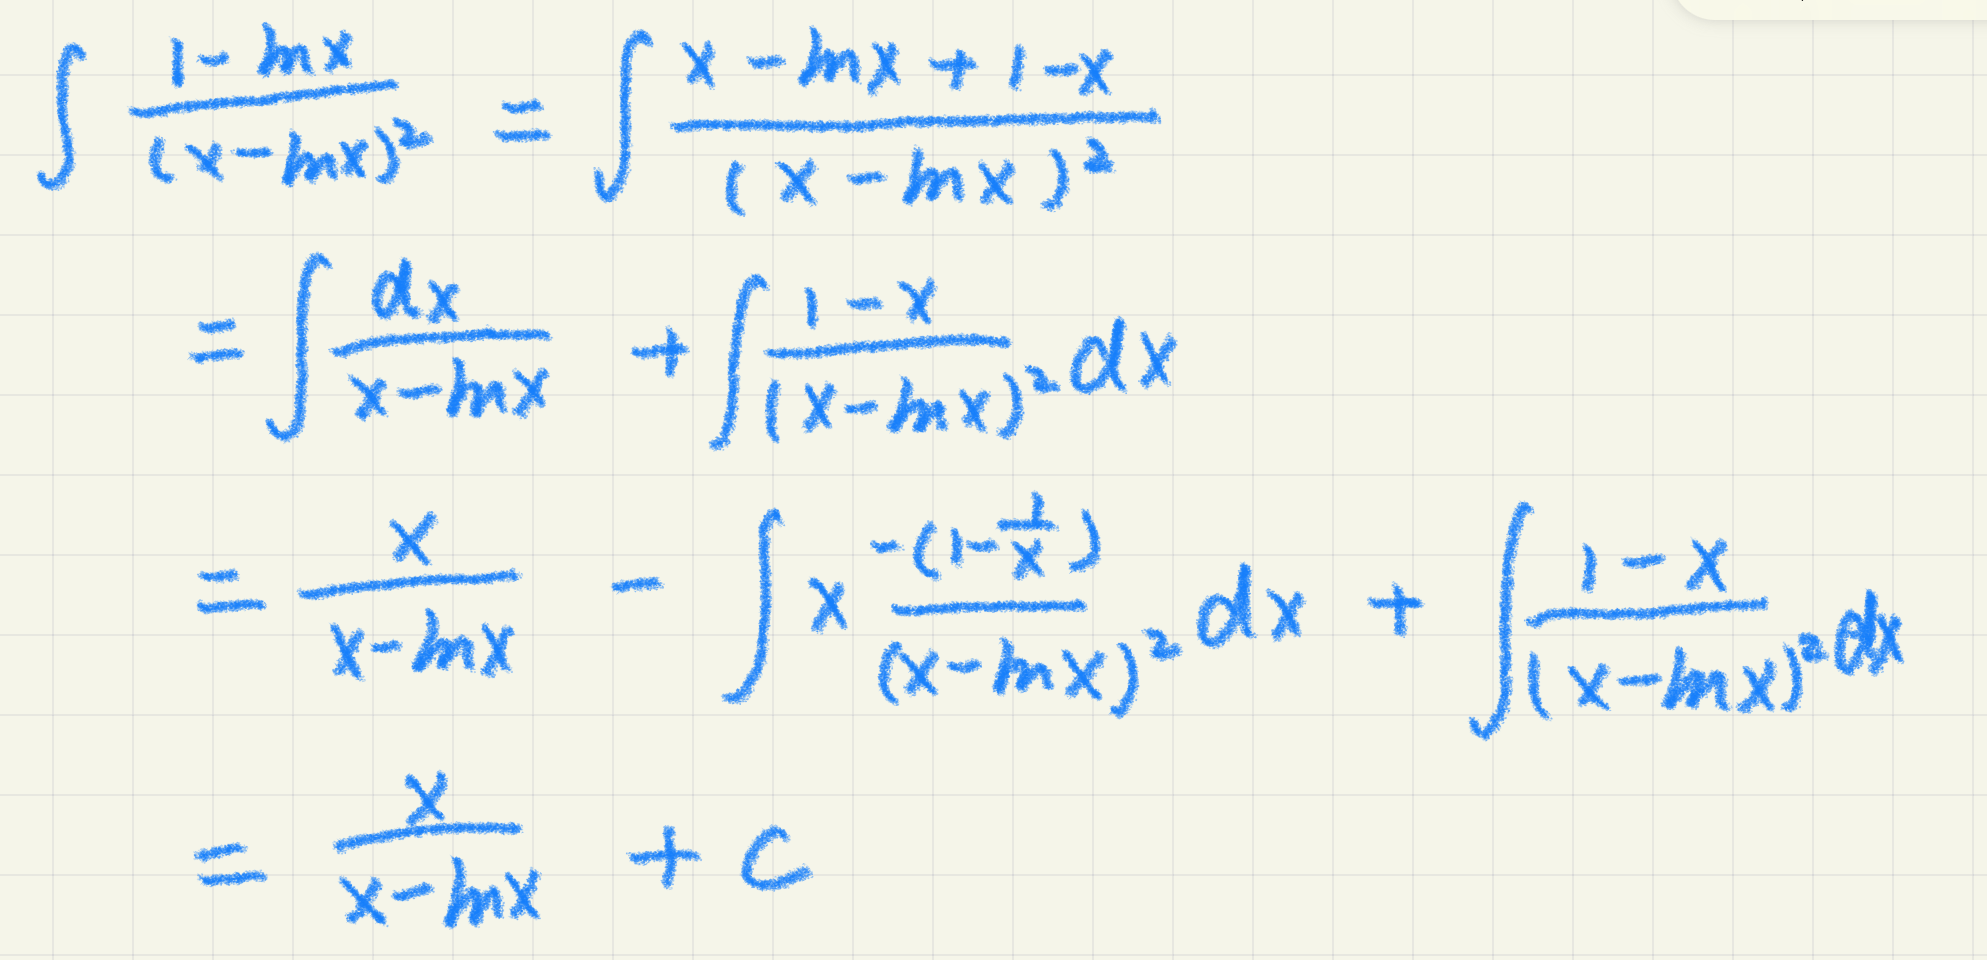 ∫ (1 - ln x)/(x - ln x)² = ∫ (x - ln x + 1 - x)/(x - ln x)²
= ∫ dx/(x - ln x) + ∫ (1 - x)/(x - ln x)² dx
= x/(x - ln x) - ∫ x (-(1 - 1/x))/(x - ln x)² dx + ∫ (1 - x)/(x - ln x)² dx
= x/(x - ln x) + C